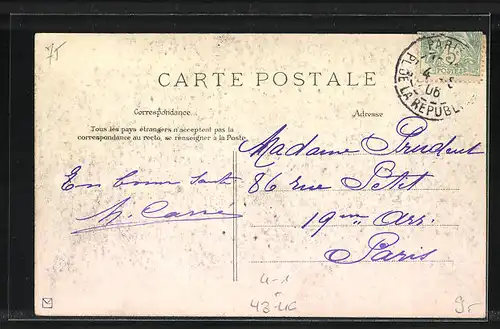 75
PARIS
4
06
PL. DE LA REPUBL
POSTES
CARTE POSTALE
Correspondance
Adresse
Tous les pays étrangers n'acceptent pas la
correspondance au recto, se renseigner à la Poste
Madame Prudent
En bonne santé
86 rue Petit
19me Arr.
Paris
4-1
9-